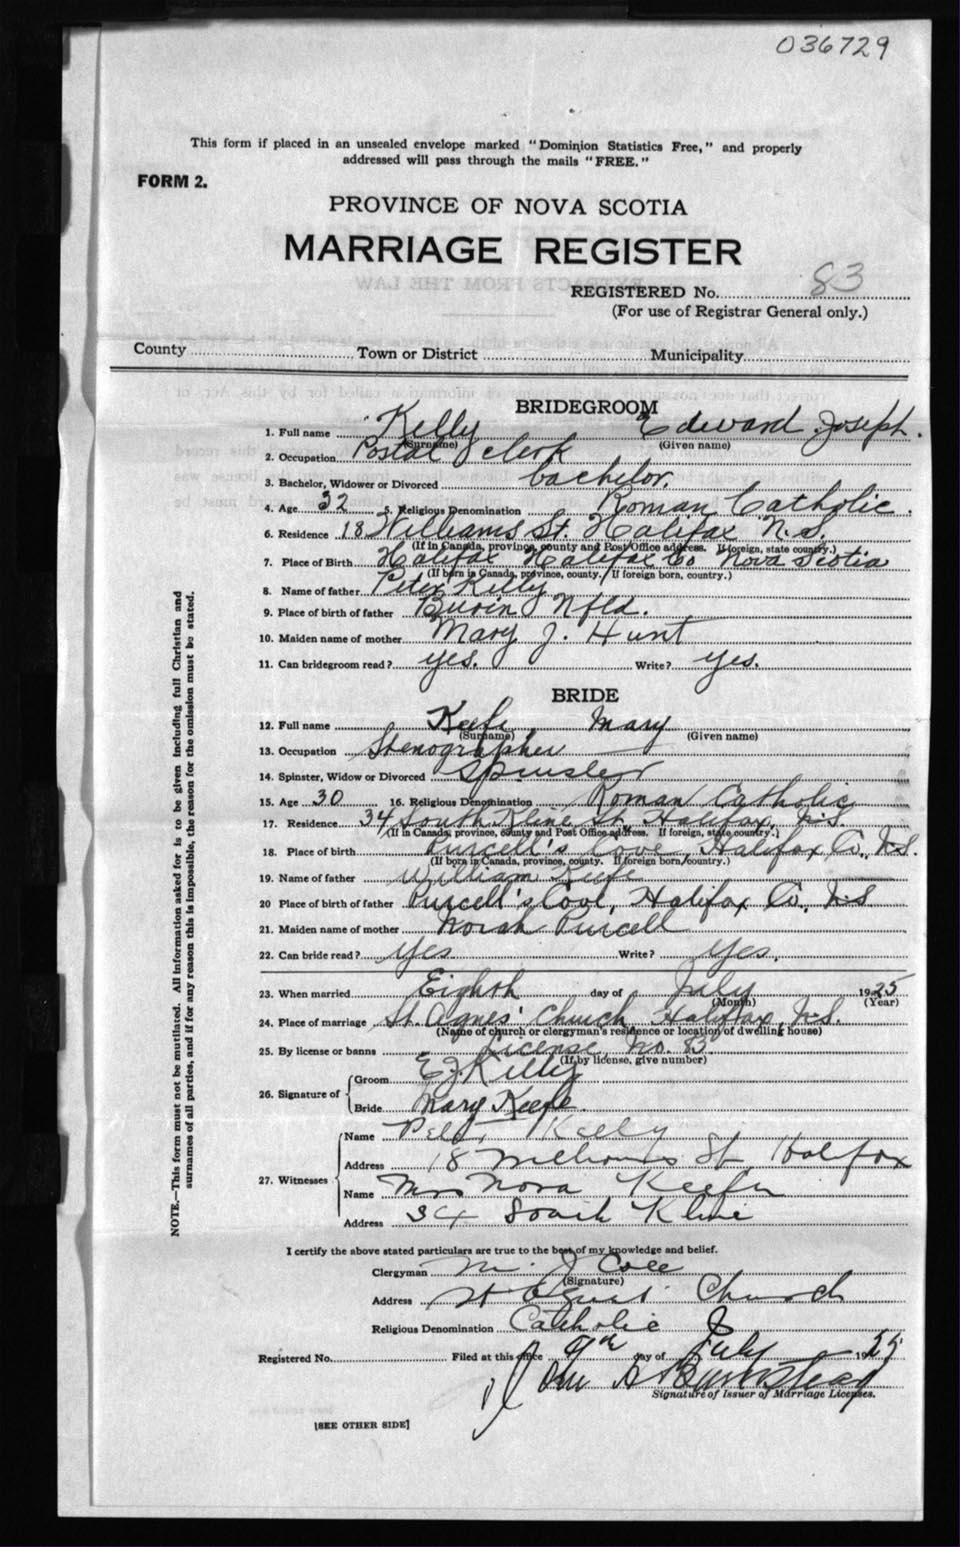 036729
This form if placed in an unsealed envelope marked "Dominion Statistics Free," and properly
addressed will pass through the mails "FREE."
FORM 2.
PROVINCE OF NOVA SCOTIA
MARRIAGE REGISTER
REGISTERED No. 83
(For use of Registrar General only.)
County Town or District Municipality
BRIDEGROOM
1. Full name Kelly Edward Joseph.
(Surname) (Given name)
2. Occupation Postal Clerk
3. Bachelor, Widower or Divorced bachelor.
4. Age 32 5. Religious Denomination Roman Catholic.
6. Residence 18 Williams St. Halifax N.S.
(If in Canada, province, county and Post Office address. If foreign, state country.)
7. Place of Birth Halifax Halifax Co Nova Scotia
(If born in Canada, province, county. If foreign born, country.)
8. Name of father Peter Kelly
9. Place of birth of father Burin Nfld.
10. Maiden name of mother Mary J. Hunt
11. Can bridegroom read? yes. Write? yes.
BRIDE
12. Full name Keefe, Mary
(Surname) (Given name)
13. Occupation Stenographer
14. Spinster, Widow or Divorced Spinster
15. Age 30 16. Religious Denomination Roman Catholic
17. Residence 34 South Kline St. Halifax, N.S.
(If in Canada, province, county and Post Office address. If foreign, state country.)
18. Place of birth Purcell's Cove Halifax Co., N.S.
(If born in Canada, province, county. If foreign born, country.)
19. Name of father William Keefe
20 Place of birth of father Purcell's Cove, Halifax Co., N.S
21. Maiden name of mother Norah Purcell
22. Can bride read? yes Write? yes.
23. When married Eighth day of July 1925
(Month) (Year)
24. Place of marriage St. Agnes' Church Halifax, N.S.
(Name of church or clergyman's residence or location of dwelling house)
25. By license or banns License No. 83
(If by license, give number)
26. Signature of Groom E J Kelly
Bride Mary Keefe.
27. Witnesses Name Kelly
Address 18 Williams St Halifax
Name Mrs Nora Keefe
Address 34 South Kline
I certify the above stated particulars are true to the best of my knowledge and belief.
Clergyman M. J Cole
(Signature)
Address St Agnes' Church
Religious Denomination Catholic
Registered No. Filed at this office 9th day of July 1925
John A Barnstead
Signature of Issuer of Marriage Licenses.
[SEE OTHER SIDE]
NOTE.—This form must not be mutilated. All information asked for is to be given including full Christian and
surnames of all parties, and if for any reason this is impossible, the reason for the omission must be stated.